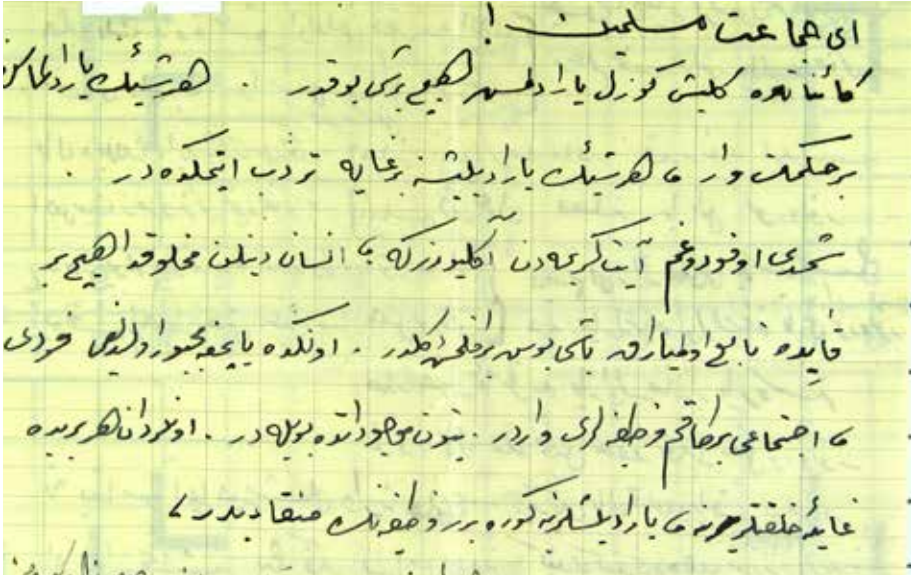 ای جماعت مسلمین !
كائناتده كلیش كوزل یارادلمش هیچ برشی یوقدر . هر شیئك یارادلماسی
بر حكمت وار ، هر شیئك یارادیلیشنه بر غایه ترتب ایتمكده در .
شمدی اوقودوغم آیت كریمه دن آكلیورزكه ؛ انسان دینلن مخلوقدا هیچ بر
قایده تابع اولمیارق باشی بوش براقلمش دكلدر . اونكده یاپمغه مجبور اولدیغی فردی
و اجتماعی برطاقم وظیفه لری واردر . بتون موجوداتده بویله در . اونلردان هر بریده
غایهٔ خلقتلرینه ، یارادیلیشلرینه كوره برر وظیفه نك منقادیدر ،